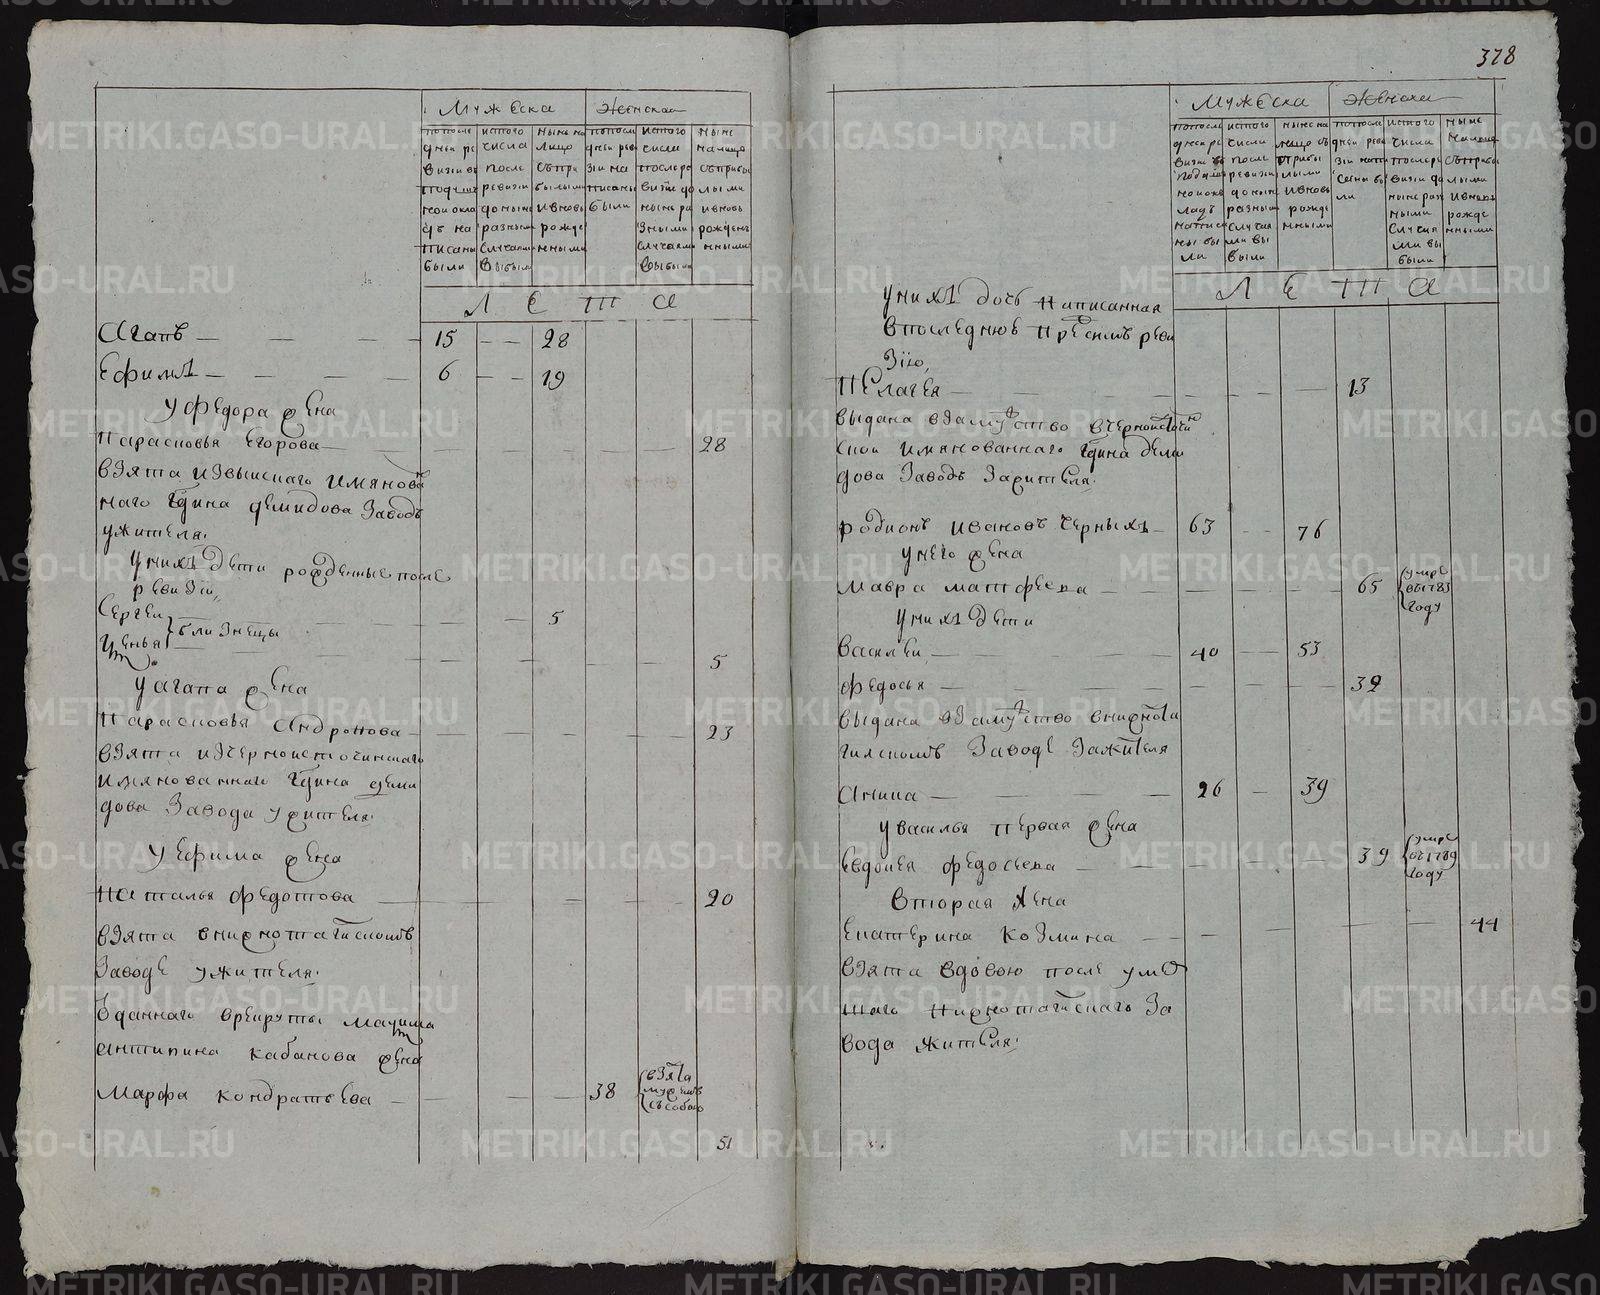 378
Мужеска Женская
попосле
дней ре
визии въ
подуш
ной окла
дъ на
писаны
были
исТого
числа
после
ревизии
до ныне
разными
случаями
выбыли
ныне на
лицо
съ при
былыми
и вновь
рожде
нными
попосле
дней реви
зии на
писаны
были
исТого
числа
после ре
визии до
ныне ра
зными
случаями
выбыли
ныне
на лицо
съ прибы
лыми
и вновь
рожден
ными
Л Е Т А
Агапъ — — — — 15 — — 28
Ефимъ — — — — 6 — — 19
у Федора жена
Парасковья Егорова — 28
взята из выйскаго имянован
наго Гдина Демидова завода
у жителя
у нихъ дети рожденные после
ревизии
Сергеи } близнецы — — 5
Устенья — — 5
у Агапа жена
Парасковья Андронова — 23
взята из черноисточинскаго
имянованнаго Гдина деми
дова завода у жителя
у Ефима жена
Наталья Федотова — 20
взята в нижнотагилскомъ
заводе у жителя
в даннаго в рекруты Максима
Антипина Кабанова жена
Марфа Кондратьева — — — — 38 { взята
мужемъ
съ собою
51
Мужеска Женска
попосле
дней ре
визии въ
подуш
ной окл
ладъ
написа
ны бы
ли
исТого
числа
после
ревизии
до ныне
разным
случая
ми вы
были
ныне на
лицо съ
прибы
лыми
и вновь
рожде
нными
попосле
дней реви
зии напи
саны бы
ли
исТого
числа
после ре
визии до
ныне раз
ными
случая
ми вы
были
ныне
на лицо
съ прибы
лыми
и вновь
рожде
нными
Л Е Т А
у нихъ дочь написанная
в последнюю пред симъ реви
зию
Пелагея — — 13
выдана в замужство в черноисточин
ской имянованнаго Гдина деми
дова заводъ за жителя
Родионъ Ивановъ Черныхъ — 63 — — 76
у него жена
Мавра Матфеева — — 65 { умре
въ 1783
году
у нихъ дети
Василеи — — — 40 — — 53
Федосья — — — 32
выдана в замужство в нижнота
гилскомъ заводе за жителя
Аника — — — 26 — 39
у Василья первая жена
Евдокея Федосеева — — — 39 { умре
въ 1789
году
вторая жена
Екатерина Козмина — — 44
взята вдовою после умер
шаго нижнотагилскаго за
вода жителя